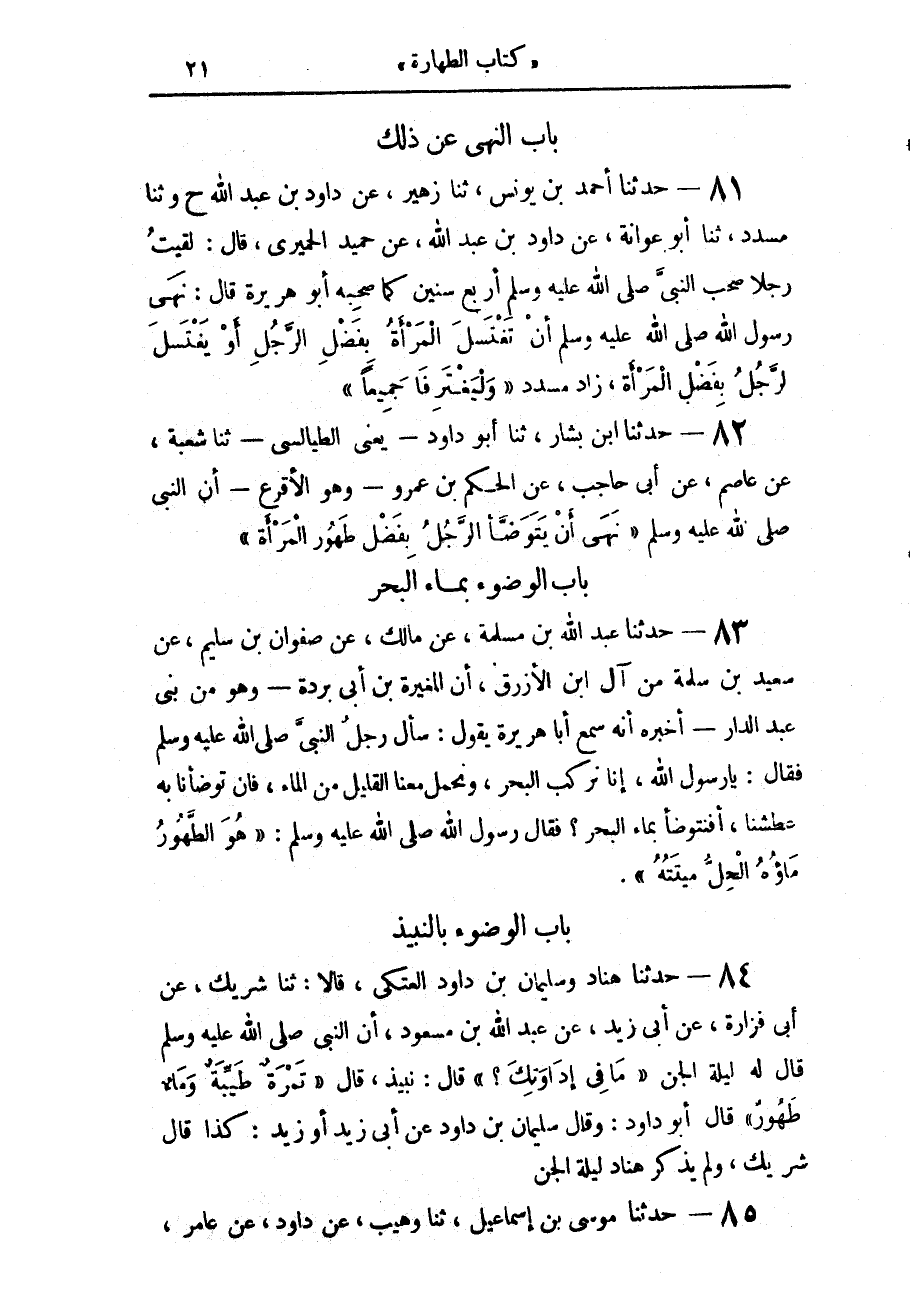 « كتاب الطهارة » ٢١
باب النهى عن ذلك
٨١ — حدثنا أحمد بن يونس ، ثنا زهير ، عن داود بن عبد الله ح و ثنا
مسدد ، ثنا أبو عوانة ، عن داود بن عبد الله ، عن حميد الحميرى ، قال : لقيتُ
رجلا صحب النبىَّ صلى الله عليه وسلم أربع سنين كما صحبه أبو هريرة قال : نَهَى
رسول الله صلى الله عليه وسلم أنْ تَغْتَسِلَ الْمَرْأَةُ بِفَضْلِ الرَّجُلِ أَوْ يَغْتَسِلَ
لرَّجُلُ بِفَضْلِ الْمَرْأَة ، زاد مسدد « وَلْيَغْتَرِفَا جَمِيعاً »
٨٢ — حدثنا ابن بشار ، ثنا أبو داود — يعنى الطيالسى — ثنا شعبة ،
عن عاصم ، عن أبى حاجب ، عن الحكم بن عمرو — وهو الأقرع — أن النبى
صلى لله عليه وسلم « نَهَى أَنْ يَتَوَضَّأَ الرَّجُلُ بِفَضْلِ طَهُورِ الْمَرْأَة »
باب الوضوء بمـاء البحر
٨٣ — حدثنا عبد الله بن مسلمة ، عن مالك ، عن صفوان بن سليم ، عن
سعيد بن سلمة من آل ابن الأزرق ، أن المغيرة بن أبى بردة — وهو من بنى
عبد الدار — أخبره أنه سمع أبا هريرة يقول : سأل رجلٌ النبىَّ صلى الله عليه وسلم
فقال : يارسول الله ، إنا نركب البحر ، ونحمل معنا القليل من الماء ، فان توضأنا به
عطشنا ، أفنتوضأ بماء البحر ؟ فقال رسول الله صلى الله عليه وسلم : « هُوَ الطَّهُورُ
مَاؤُهُ الْحِلُّ ميتَتُهُ » .
باب الوضوء بالنبيذ
٨٤ — حدثنا هناد وسليمان بن داود العتكى ، قالا : ثنا شريك ، عن
أبى فزارة ، عن أبى زيد ، عن عبد الله بن مسعود ، أن النبى صلى الله عليه وسلم
قال له ليلة الجن « مَا فِى إدَاوَتِكَ ؟ » قال : نبيذ ، قال « تَمْرَةٌ طَيِّبَةٌ وَمَاءٌ
طَهُورٌ» قال أبو داود : وقال سليمان بن داود عن أبى زيد أو زيد : كذا قال
شريك ، ولم يذكر هناد ليلة الجن
٨٥ — حدثنا موسى بن إسماعيل ، ثنا وهيب ، عن داود ، عن عامر ،